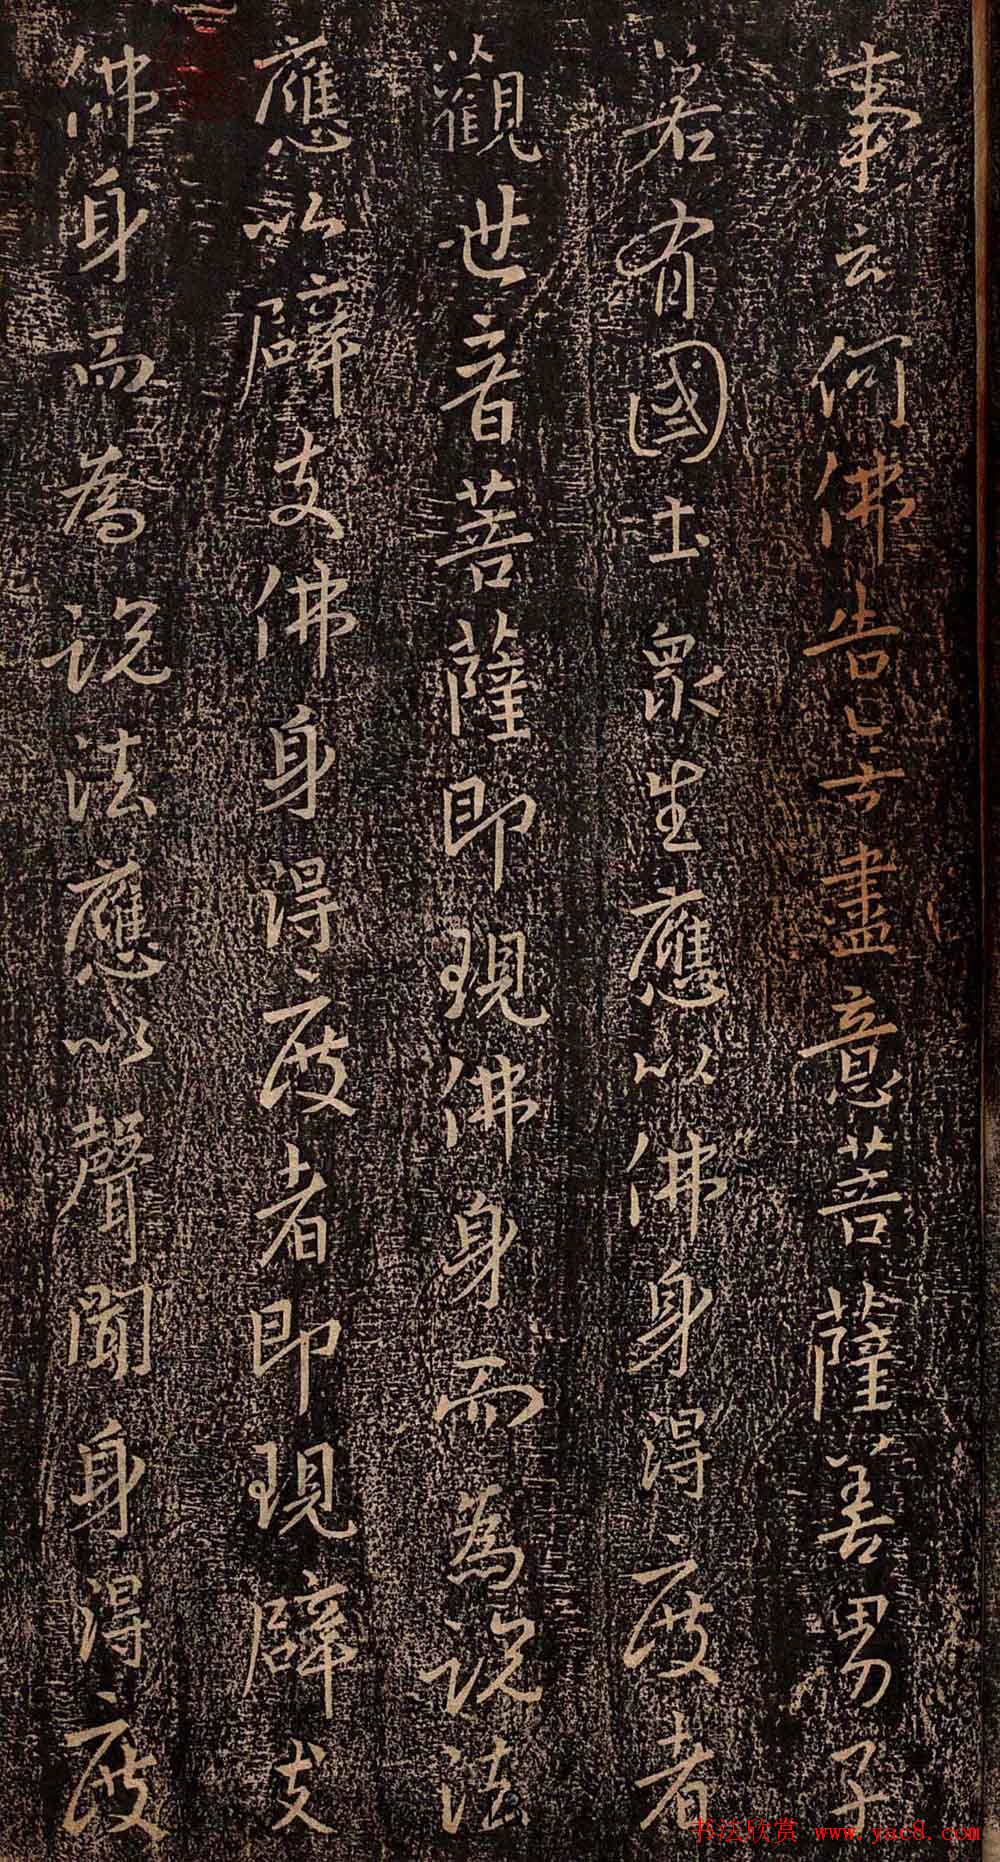 事云何佛告无盡意菩薩善男子
若有國土眾生應以佛身得度者
觀世音菩薩即現佛身而為說法
應以辟支佛身得度者即現辟支
佛身而為說法應以聲聞身得度
书法欣赏 www.yac8.com